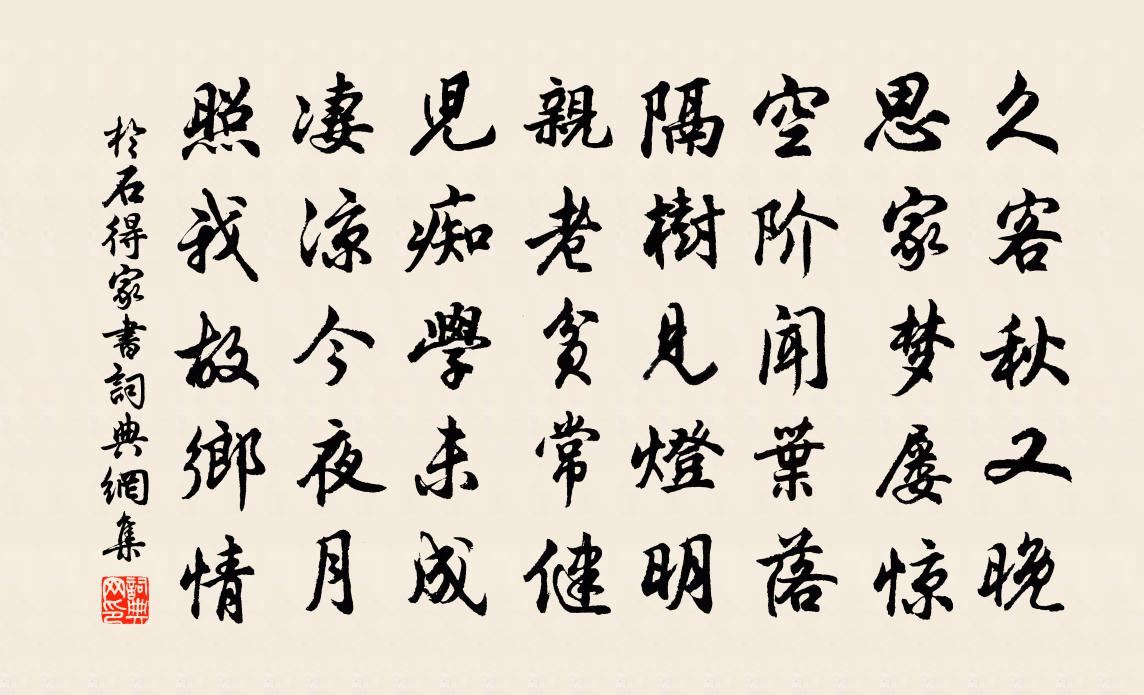 久客秋又晚
思家梦屡惊
空阶闻葉落
隔樹見燈明
親老貧常健
兒痴學未成
凄涼今夜月
照我故鄉情
於石得家書詞典網集
詞典網印